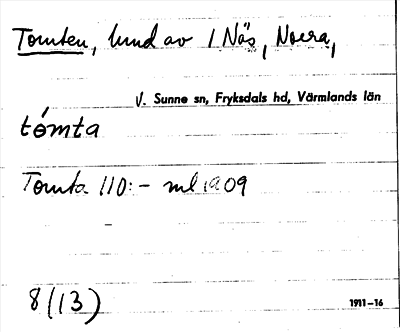 Tomten, lund av 1 Näs, Norra,
V. Sunne sn, Fryksdals hd, Värmlands län
tómta
Tomta 110:- ml 1909
8 (13)
1911-16